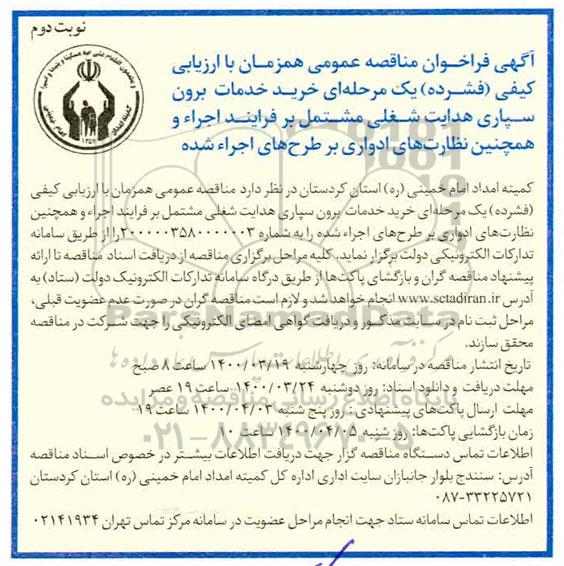 نوبت دوم
آگهی فراخوان مناقصه عمومی همزمان با ارزیابی
کیفی (فشرده) یک مرحله‌ای خرید خدمات برون
سپاری هدایت شغلی مشتمل بر فرایند اجراء و
همچنین نظارت‌های ادواری بر طرح‌های اجراء شده
کمیته امداد امام خمینی (ره) استان کردستان در نظر دارد مناقصه عمومی همزمان با ارزیابی کیفی
(فشرده) یک مرحله‌ای خرید خدمات برون سپاری هدایت شغلی مشتمل بر فرایند اجراء و همچنین
نظارت‌های ادواری بر طرح‌های اجراء شده را به شماره ۲۰۰۰۰۰۳۵۸۰۰۰۰۰۰۳ را از طریق سامانه
تدارکات الکترونیکی دولت برگزار نماید. کلیه مراحل برگزاری مناقصه از دریافت اسناد مناقصه تا ارائه
پیشنهاد مناقصه گران و بازگشای پاکت‌ها از طریق درگاه سامانه تدارکات الکترونیک دولت (ستاد) به
آدرس www.setadiran.ir انجام خواهد شد و لازم است مناقصه گران در صورت عدم عضویت قبلی،
مراحل ثبت نام در سایت مذکور و دریافت گواهی امضای الکترونیکی را جهت شرکت در مناقصه
محقق سازند.
تاریخ انتشار مناقصه در سامانه: روز چهارشنبه ۱۴۰۰/۰۳/۱۹ ساعت ۸ صبح
مهلت دریافت و دانلود اسناد: روز دوشنبه ۱۴۰۰/۰۳/۲۴ ساعت ۱۹ عصر
مهلت ارسال پاکت‌های پیشنهادی: روز پنج شنبه ۱۴۰۰/۰۴/۰۳ ساعت ۱۹
زمان بازگشایی پاکت‌ها: روز شنبه ۱۴۰۰/۰۴/۰۵ ساعت ۱۰
اطلاعات تماس دستگاه مناقصه گزار جهت دریافت اطلاعات بیشتر در خصوص اسناد مناقصه
آدرس: سنندج بلوار جانبازان سایت اداری اداره کل کمیته امداد امام خمینی (ره) استان کردستان
۰۸۷-۳۳۲۲۵۷۲۱
اطلاعات تماس سامانه ستاد جهت انجام مراحل عضویت در سامانه مرکز تماس تهران ۰۲۱۴۱۹۳۴
ParsNamadData
پایگاه اطلاع رسانی مناقصه و مزایده
۰۲۱-۸۸۳۴۹۶۷۰-۵